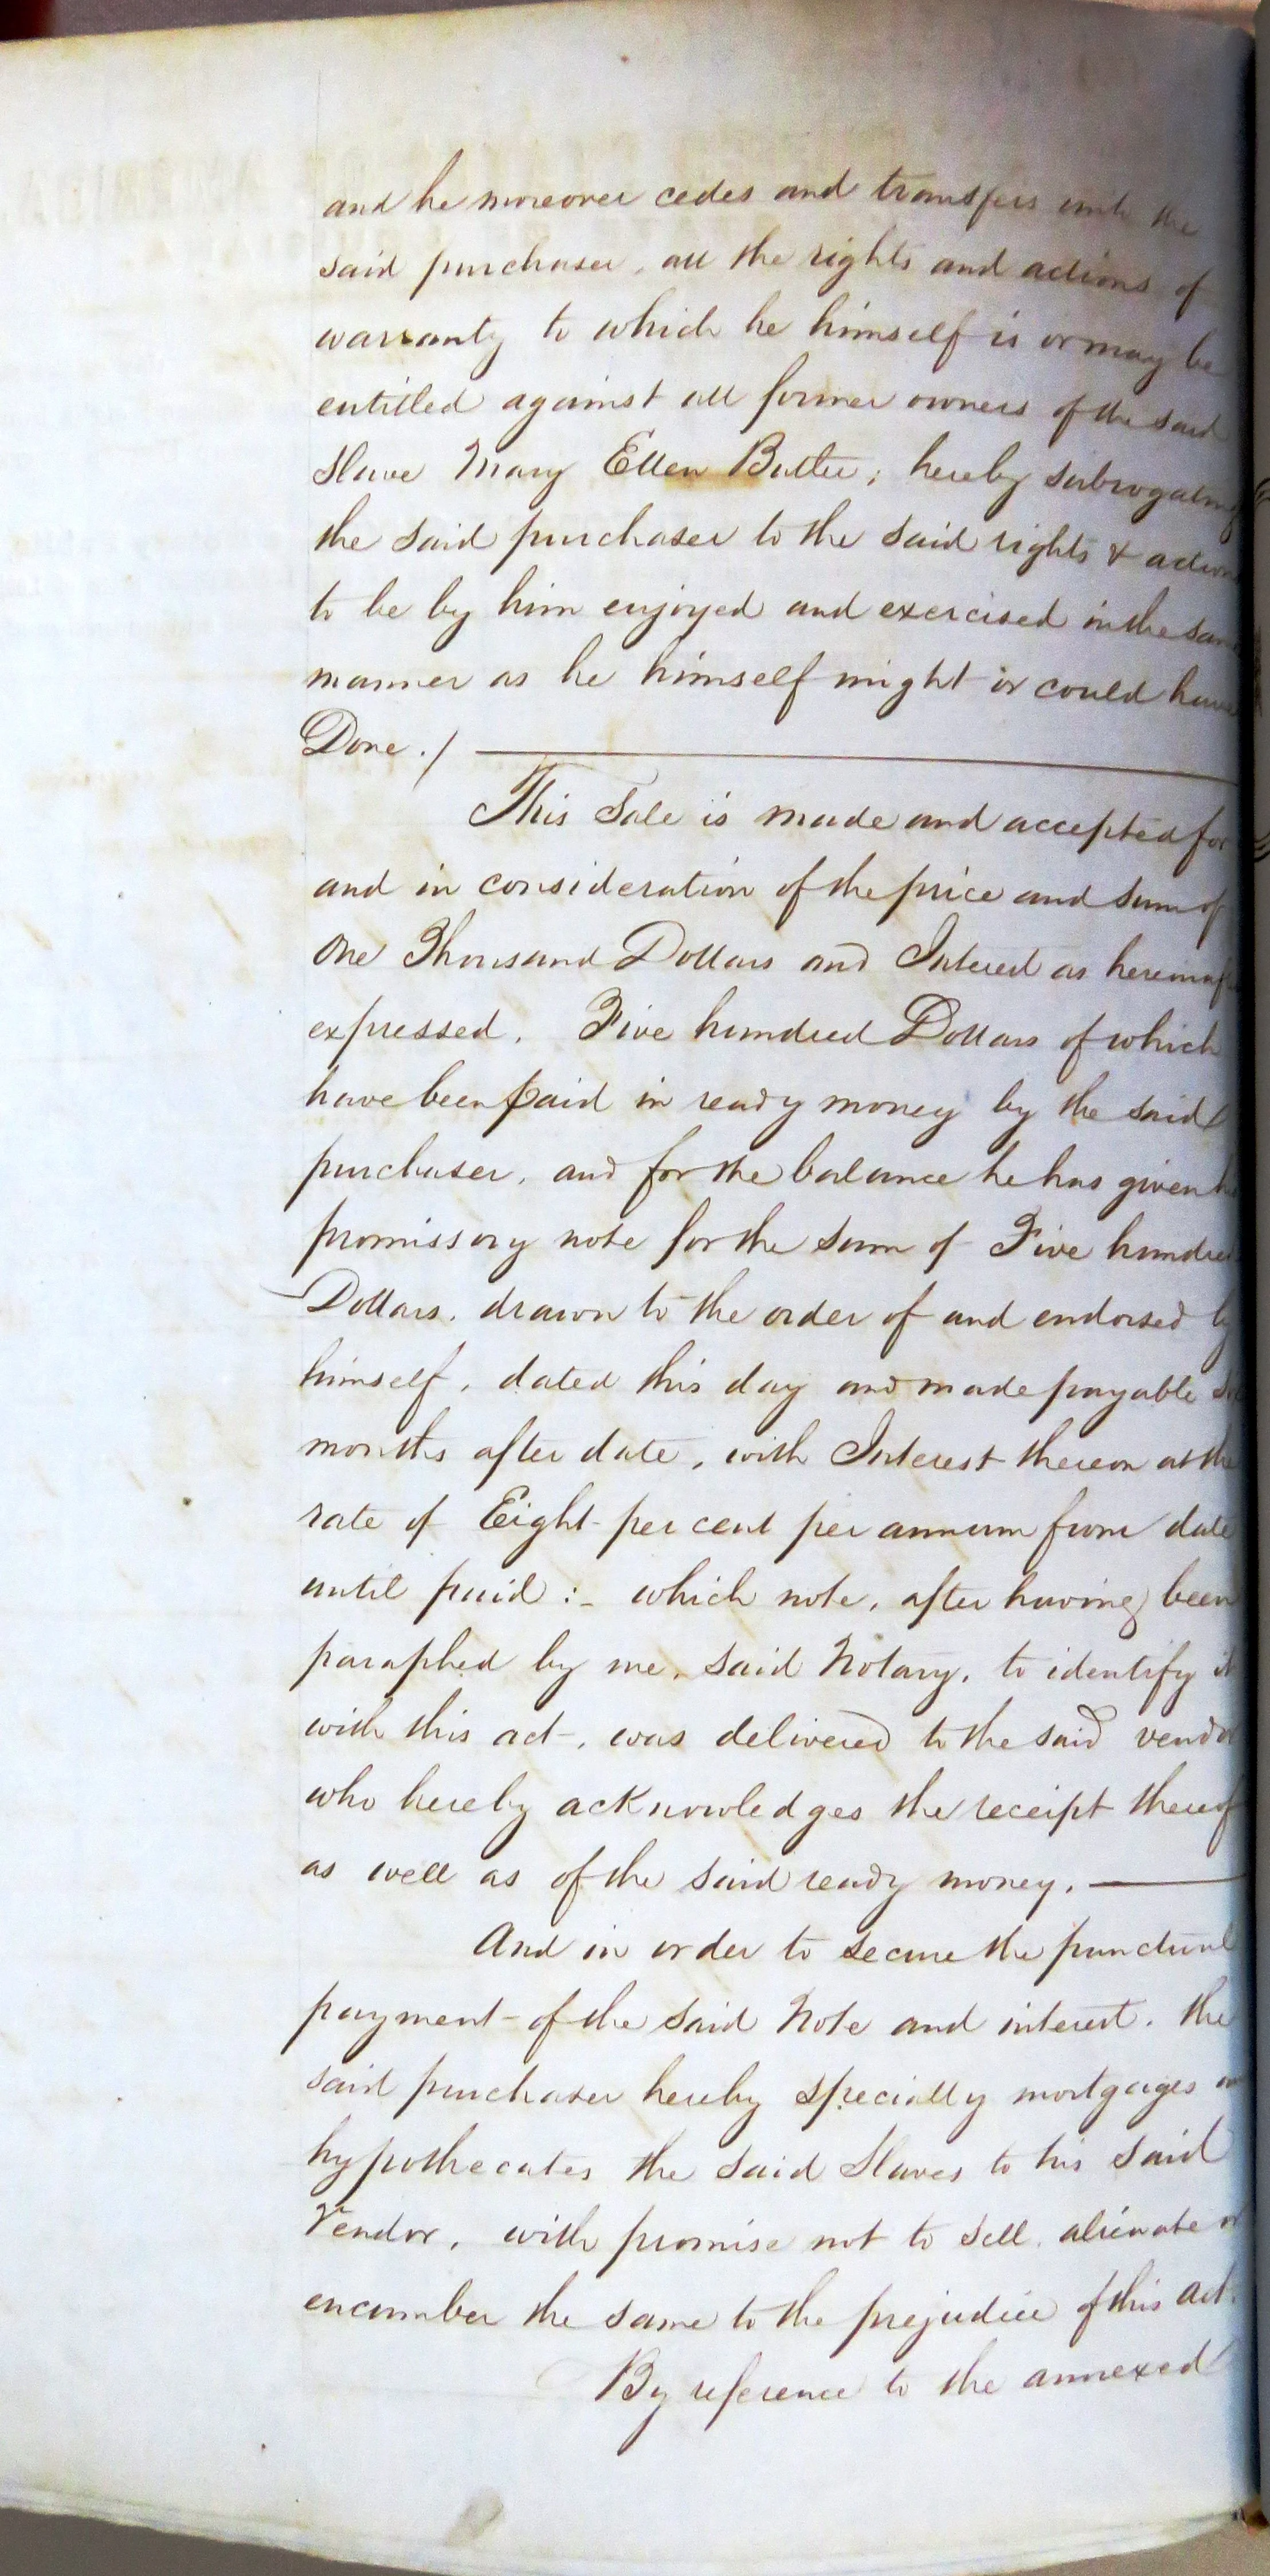 and he moreover cedes and transfers unto the
said purchaser, all the rights and actions of
warranty to which he himself is or may be
entitled against all former owners of the said
Slave Mary Ellen Butler; hereby subrogating
the said purchaser to the said rights & actions
to be by him enjoyed and exercised in the same
manner as he himself might or could have
Done./
This Sale is made and accepted for
and in consideration of the price and sum of
One Thousand Dollars and Interest as hereinaf
expressed. Five hundred Dollars of which
have been paid in ready money by the said
purchaser, and for the balance he has given
promissory note for the sum of Five hundred
Dollars, drawn to the order of and endorsed by
himself, dated this day and made payable
months after date, with Interest thereon at the
rate of Eight per cent per annum from date
until paid :- which note, after having been
paraphed by me, said Notary, to identify it
with this act, was delivered to the said vendor
who hereby acknowledges the receipt thereof
as well as of the said ready money.
And in order to secure the punctual
payment of the said Note and interest, the
said purchaser hereby specially mortgages
hypothecates the said Slaves to his said
Vendor, with promise not to sell, alienate or
encumber the same to the prejudice of this act.
By reference to the annexed